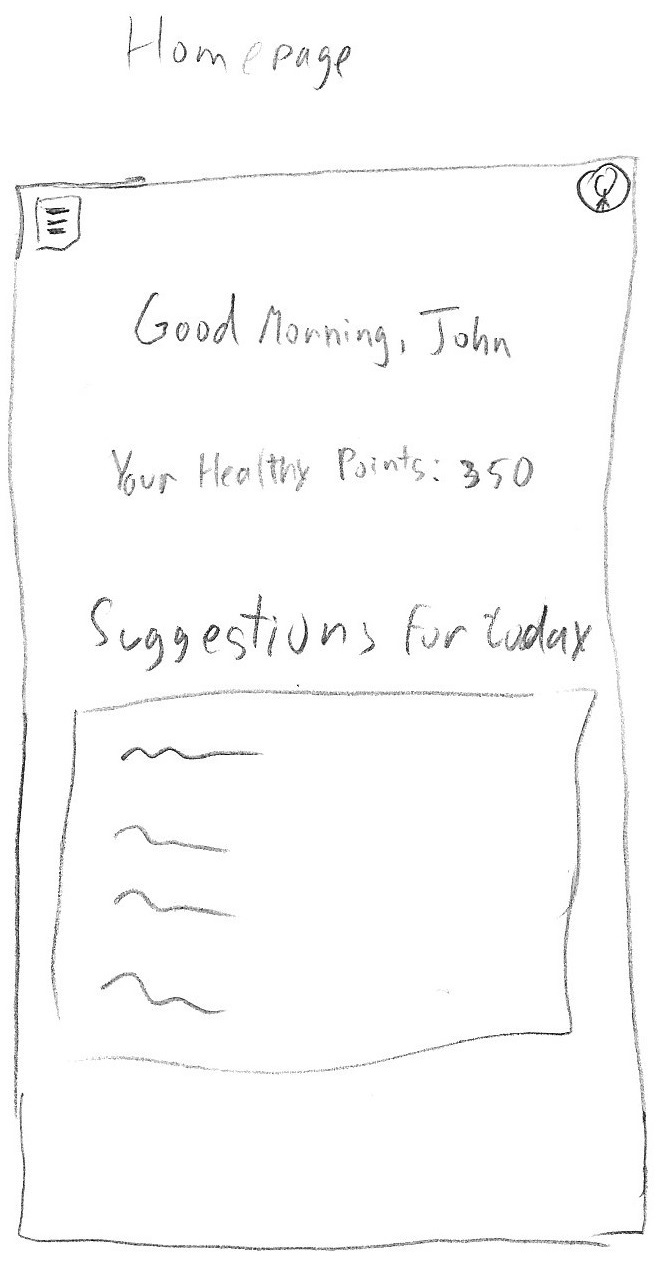 Homepage
Good Morning, John
Your Healthy Points: 350
Suggestions for today